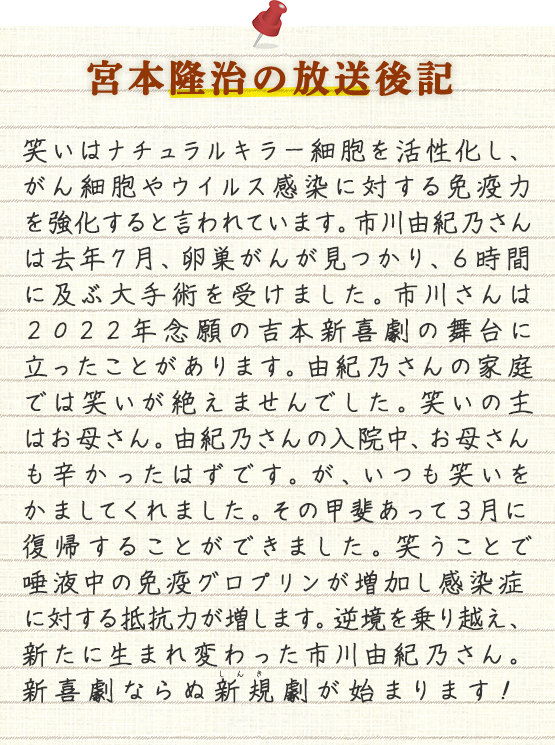 宮本隆治の放送後記
笑いはナチュラルキラー細胞を活性化し、
がん細胞やウイルス感染に対する免疫力
を強化すると言われています。市川由紀乃さん
は去年7月、卵巣がんが見つかり、6時間
に及ぶ大手術を受けました。市川さんは
2022年念願の吉本新喜劇の舞台に
立ったことがあります。由紀乃さんの家庭
では笑いが絶えませんでした。笑いの主
はお母さん。由紀乃さんの入院中、お母さん
も辛かったはずです。が、いつも笑いを
かましてくれました。その甲斐あって3月に
復帰することができました。笑うことで
唾液中の免疫グロブリンが増加し感染症
に対する抵抗力が増します。逆境を乗り越え、
新たに生まれ変わった市川由紀乃さん。
しんき
新喜劇ならぬ新規劇が始まります!